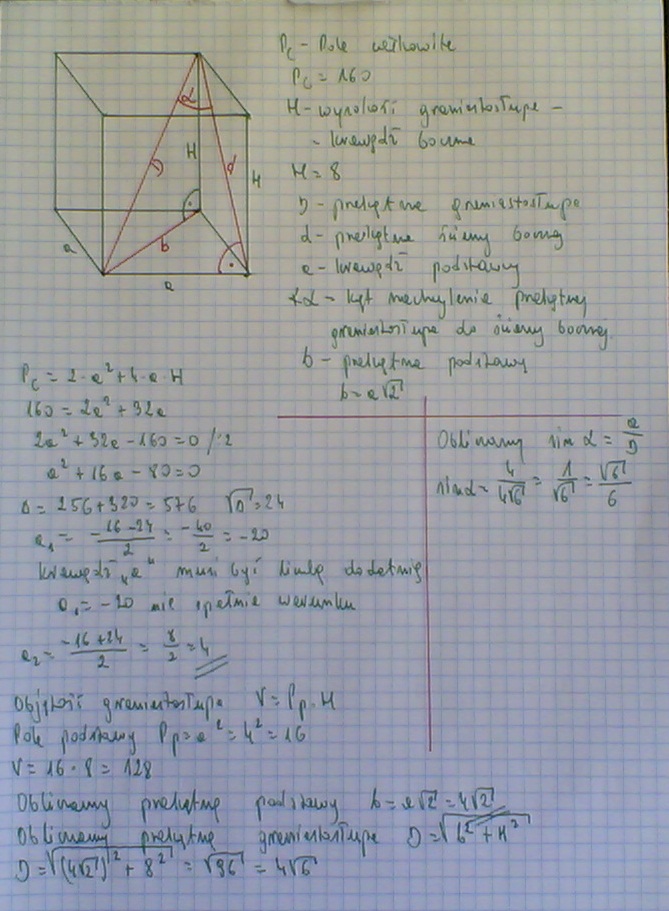 Pc - Pole całkowite
Pc = 160
H - wysokość graniastosłupa -
- krawędź boczna
H = 8
D - przekątna graniastosłupa
d - przekątna ściany bocznej
a - krawędź podstawy
∢α - kąt nachylenia przekątnej
graniastosłupa do ściany bocznej.
b - przekątna podstawy
b = a√2
α
H
D
d
H
a
b
a
Pc = 2·a² + 4·a·H
160 = 2a² + 32a
2a² + 32a - 160 = 0 /:2
a² + 16a - 80 = 0
Δ = 256 + 320 = 576 √Δ = 24
a₁ = -16-24/2 = -40/2 = -20
krawędź "a" musi być liczbą dodatnią
a₁ = -20 nie spełnia warunku
a₂ = -16+24/2 = 8/2 = 4
Obliczamy sin α = a/D
sin α = 4/4√6 = 1/√6 = √6/6
Objętość graniastosłupa V = Pp·H
Pole podstawy Pp = a² = 4² = 16
V = 16·8 = 128
Obliczamy przekątną podstawy b = a√2 = 4√2
Obliczamy przekątną graniastosłupa D = √b² + H²
D = √(4√2)² + 8² = √96 = 4√6